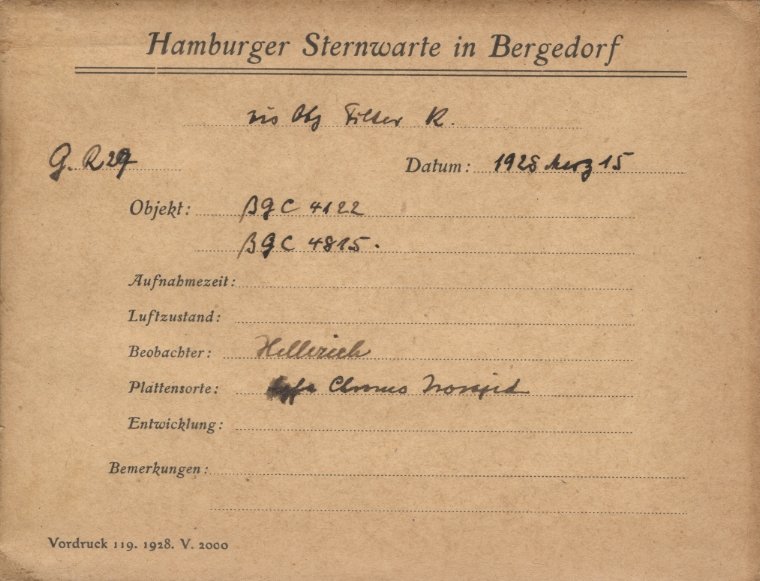 Hamburger Sternwarte in Bergedorf
vis Obj Filter R.
G. R 27
Datum: 1928 Merz 15
Objekt: BGC 4122
BGC 4815.
Aufnahmezeit:
Luftzustand:
Beobachter: Hellerich
Plattensorte: Chromo
Entwicklung:
Bemerkungen:
Vordruck 119. 1928. V. 2000